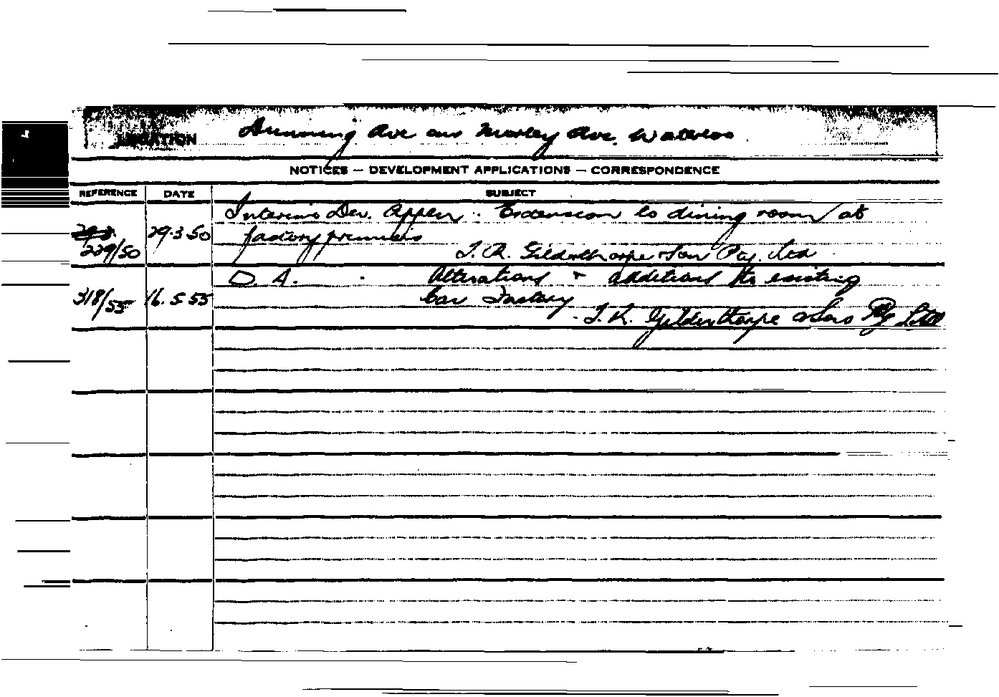 LOCATION Dunning Ave cnr Morley Ave. Waterloo
NOTICES — DEVELOPMENT APPLICATIONS — CORRESPONDENCE
REFERENCE DATE SUBJECT
Interim Dev. Applcn. Extension to dining room at
229/50 29.3.50 factory premises
Gilderthorpe & Son Pty. Ltd
D. A. Alterations & additions to existing
318/55 16.5.55 car factory
Gilderthorpe & Sons Pty Ltd